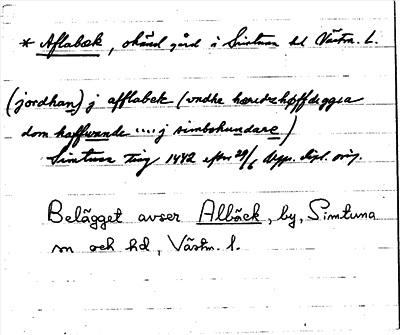 * Aflabæk, okänd gård i Simtuna hd Västm. l.
(jordhan) j afflabek (vndhe hæredzhøffdeggia
dom haffwande ....j simbohundare)
Simtuna ting 1442 efter 29/6 Upps. dipl. orig.
Belägget avser Albäck, by, Simtuna
sn och hd, Västm. l.